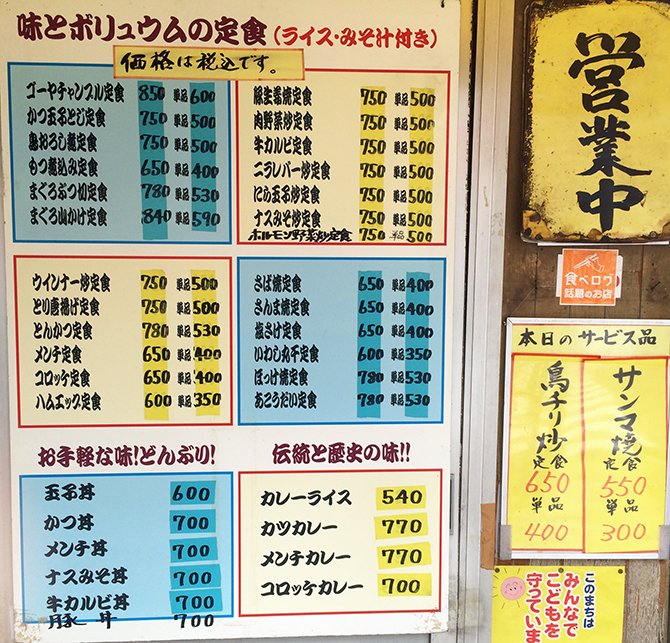 味とボリュウムの定食(ライス・みそ汁付き)
価格は税込です。
ゴーヤチャンプル定食 850 単品 600
かつ玉子とじ定食 750 単品 500
鳥おろし煮定食 750 単品 500
もつ煮込み定食 650 単品 400
まぐろぶつ切定食 780 単品 530
まぐろ山かけ定食 840 単品 590
豚生姜焼定食 750 単品 500
肉野菜炒定食 750 単品 500
牛カルビ定食 750 単品 500
ニラレバー炒定食 750 単品 500
にら玉子炒定食 750 単品 500
ナスみそ炒定食 750 単品 500
ホルモン野菜炒定食 750 単品 500
ウインナー炒定食 750 単品 500
とり唐揚げ定食 750 単品 500
とんかつ定食 780 単品 530
メンチ定食 650 単品 400
コロッケ定食 650 単品 400
ハムエッグ定食 600 単品 350
さば焼定食 650 単品 400
さんま焼定食 650 単品 400
塩さけ定食 650 単品 400
いわし丸干定食 600 単品 350
ほっけ焼定食 780 単品 530
あこうだい定食 780 単品 530
お手軽な味!どんぶり!
玉子丼 600
かつ丼 700
メンチ丼 700
ナスみそ丼 700
牛カルビ丼 700
豚丼 700
伝統と歴史の味!!
カレーライス 540
カツカレー 770
メンチカレー 770
コロッケカレー 700
営業中
食べログ
話題のお店
本日のサービス品
サンマ焼
定食
550
単品
300
鳥チリ炒
定食
650
単品
400
このまちは
みんなで
こどもを
守っていま